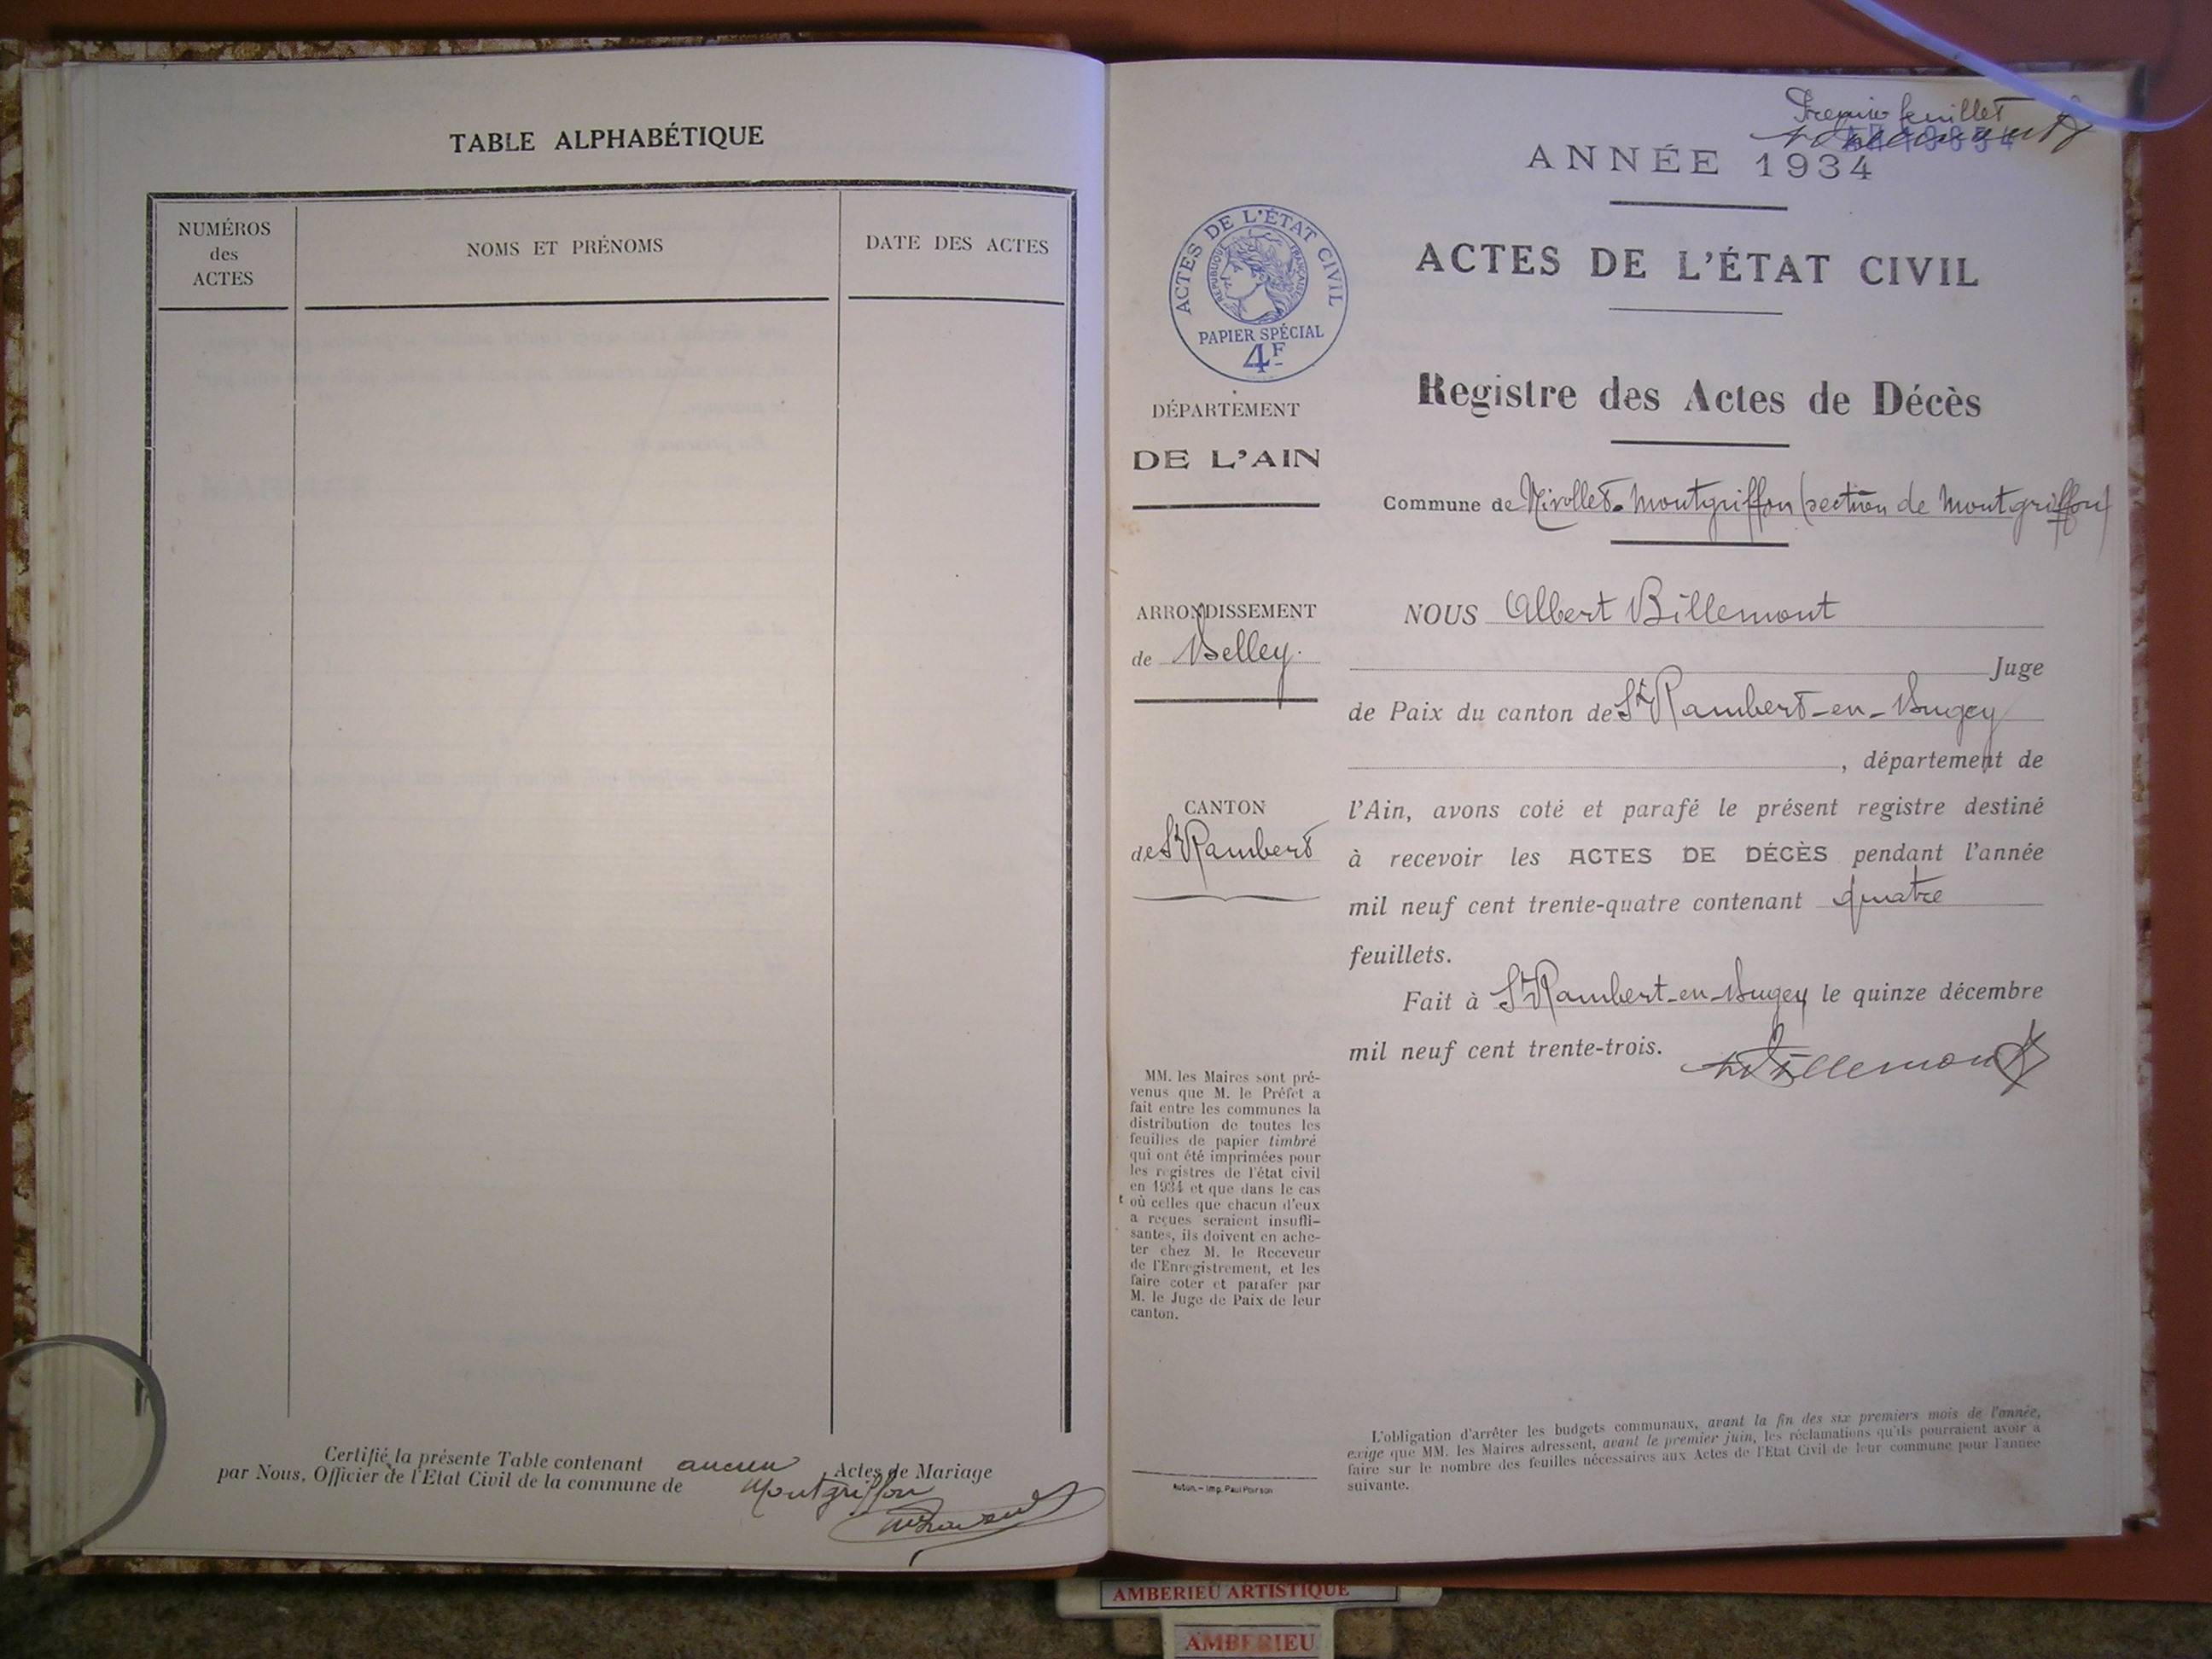 TABLE ALPHABÉTIQUE
NUMÉROS
des
ACTES
NOMS ET PRÉNOMS
DATE DES ACTES
Certifié la présente Table contenant aucun Actes de Mariage
par Nous, Officier de l'Etat Civil de la commune de Montgriffon
Premier feuillet
ANNÉE 1934
ACTES DE L'ÉTAT CIVIL
RÉPUBLIQUE FRANÇAISE
PAPIER SPÉCIAL
4F
ACTES DE L'ÉTAT CIVIL
Registre des Actes de Décès
Commune de Nivollet-Montgriffon (section de Montgriffon)
DÉPARTEMENT
DE L'AIN
ARRONDISSEMENT
de Belley.
CANTON
de St Rambert
NOUS Albert Billemont
Juge
de Paix du canton de St Rambert-en-Bugey
, département de
l'Ain, avons coté et parafé le présent registre destiné
à recevoir les ACTES DE DÉCÈS pendant l'année
mil neuf cent trente-quatre contenant quatre
feuillets.
Fait à St Rambert-en-Bugey le quinze décembre
mil neuf cent trente-trois.
Billemont
MM. les Maires sont pré-
venus que M. le Préfet a
fait entre les communes la
distribution de toutes les
feuilles de papier timbré
qui ont été imprimées pour
les registres de l'état civil
en 1934 et que dans le cas
où celles que chacun d'eux
a reçues seraient insuffi-
santes, ils doivent en ache-
ter chez M. le Receveur
de l'Enregistrement, et les
faire coter et parafer par
M. le Juge de Paix de leur
canton.
Autun. - Imp. Paul Poirson
L'obligation d'arrêter les budgets communaux, avant la fin des six premiers mois de l'année,
exige que MM. les Maires adressent, avant le premier juin, les réclamations qu'ils pourraient avoir à
faire sur le nombre des feuilles nécessaires aux Actes de l'Etat Civil de leur commune pour l'année
suivante.
AMBERIEU ARTISTIQUE
AMBERIEU